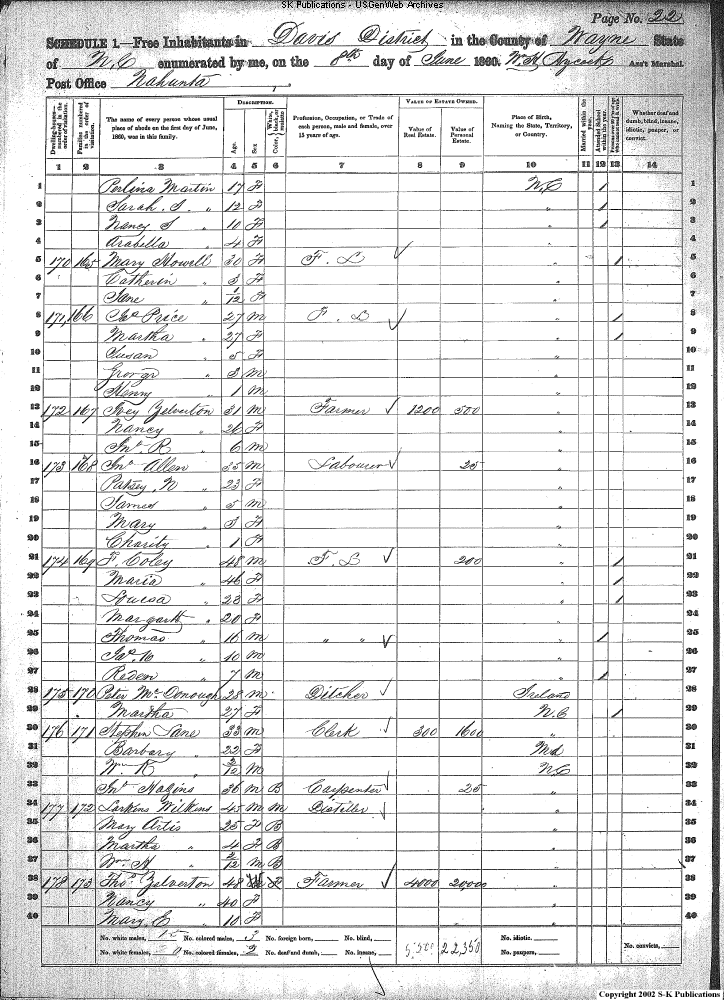 SK Publications - USGenWeb Archives
Page No. 22
SCHEDULE 1.—Free Inhabitants in Davis District in the County of Wayne State
of N.C enumerated by me, on the 8th day of June 1860. Ass't Marshal.
Post Office Nahunta
DESCRIPTION. VALUE OF ESTATE OWNED.
Dwelling-houses—numbered in the order of visitation. Families numbered in the order of visitation. The name of every person whose usual place of abode on the first day of June, 1860, was in this family. Age. Sex. Profession, Occupation, or Trade of each person, male and female, over 15 years of age. Value of Real Estate. Value of Personal Estate. Place of Birth, Naming the State, Territory, or Country. Married within the year. Attended School within the year. Whether deaf and dumb, blind, insane, idiotic, pauper, or convict.
1 2 3 4 5 6 7 8 9 10 11 12 13 14
1 Perlina Martin 17 F N.C / 1
2 Sarah. S. " 12 F " / 2
3 Nancy S " 10 F " / 3
4 Arabella " 4 F " 4
5 170 165 Mary Howell 30 F F. L " / 5
6 Catherin " 3 F " 6
7 Jane " 1/12 F " 7
8 171 166 Jas Price 27 M F. L " / 8
9 Martha " 27 F " / 9
10 Susan " 5 F " 10
11 George " 3 M " 11
12 Henry " 1 M " 12
13 172 167 Yelverton 31 M Farmer 1200 500 " 13
14 Nancy " 26 F " 14
15 Jno R " 6 M " 15
16 173 168 Jno Allen 25 M Labourer 25 " 16
17 Patsey. N " 23 F " 17
18 James " 5 M " 18
19 Mary " 3 F " 19
20 Charity " 1 F " 20
21 174 169 F. Coley 48 M F. L 200 " / 21
22 Maria " 46 F " / 22
23 Louesa " 23 F " / 23
24 Margarett " 20 F " 24
25 Thomas " 16 M " " " / 25
26 Jas. " 10 M " 26
27 Reden " 7 M " / 27
28 175 170 Peter McDonough 28 M Ditcher Ireland 28
29 Martha " 27 F N.C / 29
30 176 171 Stephen Lane 33 M Clerk 300 1600 " 30
31 Barbary " 22 F Md 31
32 Wm R " 2/12 M N.C 32
33 Jno Hagins 36 M B Carpenter 25 " 33
34 177 172 Larkins Wilkins 45 M M Distiller " 34
35 Mary Artis 25 F B " 35
36 Martha " 4 F B " 36
37 Wm H " 2/12 M B " 37
38 178 173 Thos Yelverton 48 Farmer 4000 20,000 " 38
39 Nancy " 40 F " 39
40 Mary E " 10 F " 40
No. white males, 15 No. colored males, 3 No. foreign born, No. blind, No. idiotic.
No. white females, No. colored females, 2 No. deaf and dumb, No. insane, 5,500 22,350 No. paupers, No. convicts,
Copyright 2002 S-K Publications